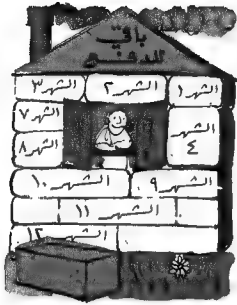 باقي
للدفع
الشهر ١ الشهر ٢ الشهر ٣
الشهر ٤ الشهر ٧
الشهر ٨
الشهر ٩ الشهر ١٠
الشهر ١١
الشهر ١٢